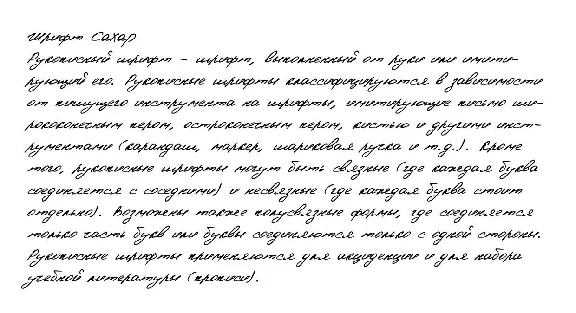 Шрифт Сахар
Рукописный шрифт – шрифт, выполненный от руки или имити-
рующий его. Рукописные шрифты классифицируются в зависимости
от пишущего инструмента на шрифты, имитирующие письмо ши-
рококонечным пером, остроконечным пером, кистью и другими инст-
рументами (карандаш, маркер, шариковая ручка и т.д.). Кроме
того, рукописные шрифты могут быть связные (где каждая буква
соединяется с соседними) и несвязные (где каждая буква стоит
отдельно). Возможны также полусвязные формы, где соединяется
только часть букв или буквы соединяются только с одной стороны.
Рукописные шрифты применяются для акциденции и для набора
учебной литературы (прописи).